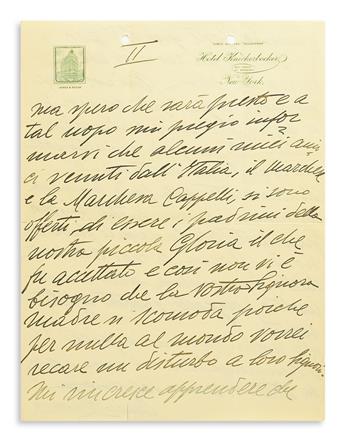 II
Hotel Knickerbocker
New York
ma spero che sarà presto e a
tal uopo mi pregio infor
marvi che alcuni miei ami
ci venuti dall'Italia, il Marchese
e la Marchesa Cappelli, si sono
offerti di essere i padrini della
nostra piccola Gloria il che
fu accettato e così non vi è
bisogno che la Vostra Signora
madre si scomoda poiche
per nulla al mondo vorrei
recare un disturbo a loro Signori.
Mi rincresce apprendere che